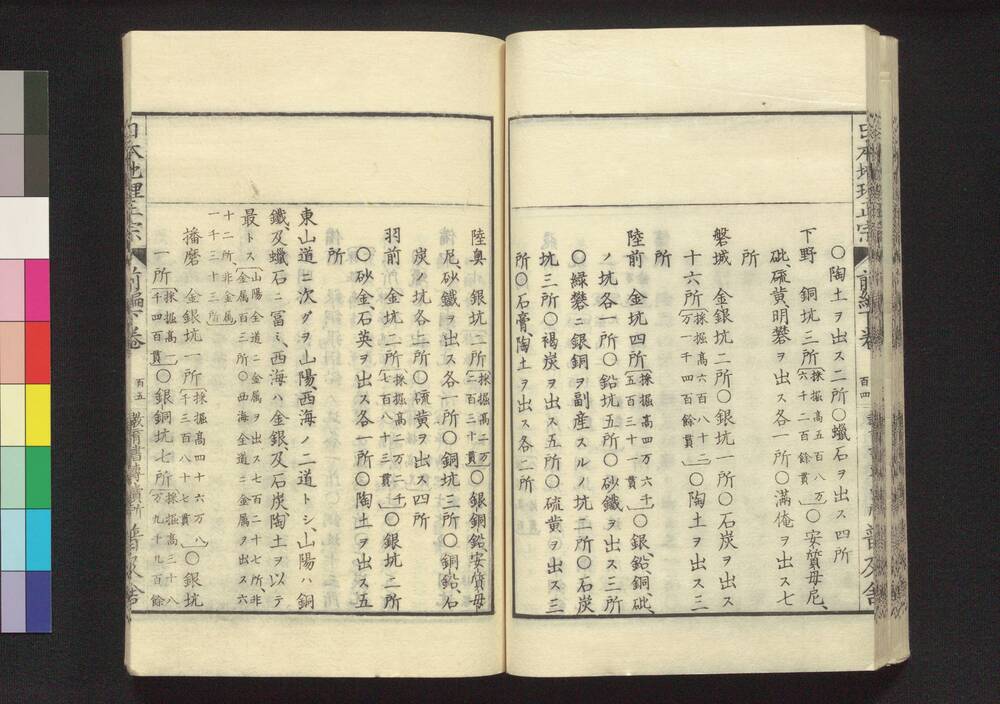 日本地理正宗 前編下巻 百四 普及舎
〇陶土ヲ出ス二所〇蠟石ヲ出ス四所
下野 銅坑三所(採掘高五百八万六千二百餘貫)〇安質母尼、
砒、硫黄、明礬ヲ出ス各一所〇滿俺ヲ出ス七
所
磐城 金銀坑二所〇銀坑一所〇石炭ヲ出ス
十六所(採掘高六百八十二万一千四百餘貫)〇陶土ヲ出ス三
所
陸前 金坑四所(採掘高四万六千五百三十一貫)〇銀鉛、銅、砒、
ノ坑各一所〇鉛坑五所〇砂鐵ヲ出ス三所
〇緑礬ニ銀銅ヲ副産スルノ坑二所〇石炭
坑三所〇褐炭ヲ出ス五所〇硫黄ヲ出ス三
所〇石膏、陶土ヲ出ス各二所
陸奥 銀坑二所(採掘高二万二百三十貫)〇銀銅鉛、安質母
尼、砂鐵ヲ出ス各一所〇銅坑三所〇銅鉛、石
炭ノ坑各二所〇硫黄ヲ出ス四所
羽前 金坑二所(採掘高二万二千七百八十三貫)〇銀坑二所
〇砂金石英ヲ出ス各一所〇陶土ヲ出ス五
所
東山道ニ次グヲ山陽、西海ノ二道トシ、山陽ハ銅
鐵、及蠟石ニ冨ミ、西海ハ金銀、及石炭、陶土ヲ以テ
最トス(山陽全道ニ金属ヲ出ス七百二十七所、非金属百三所〇西海全道ニ金属ヲ出ス六
十二所、非金属一千三十三所)
播磨 金銀坑一所(採掘高四十六万八千三百八十七貫)〇銀坑
一所(採掘高一千四百貫)〇銀銅坑七所(採掘高三十八万九千九百餘
日本地理正宗 前編下巻 百五 教育書専賣所 普及舎